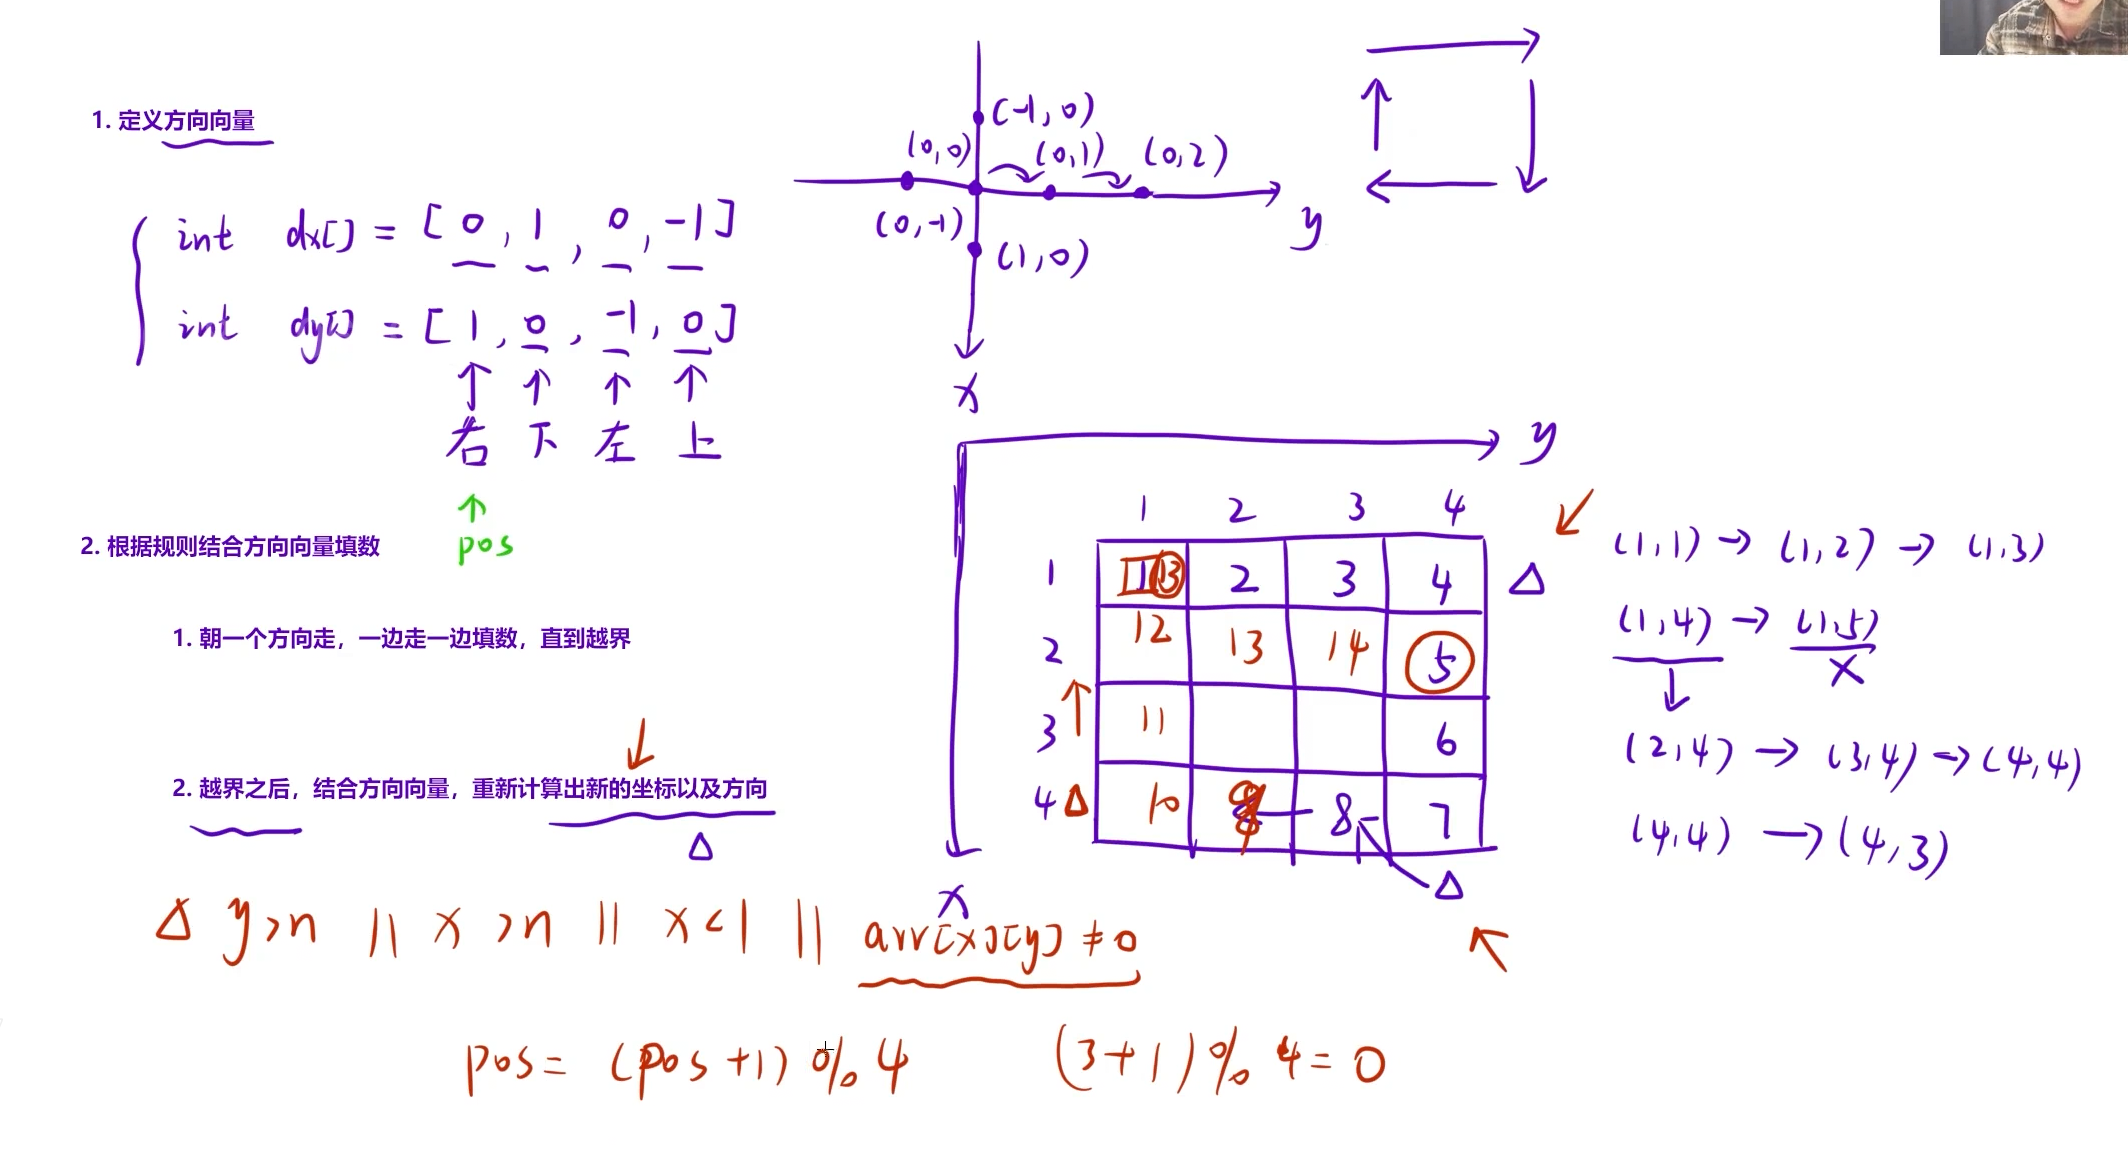 1. 定义方向向量
int dx[] = [0, 1, 0, -1]
int dy[] = [1, 0, -1, 0]
右 下 左 上
pos
(-1, 0)
(0, 0) (0, 1) (0, 2)
(0, -1)
(1, 0)
y
x
2. 根据规则结合方向向量填数
1. 朝一个方向走，一边走一边填数，直到越界
2. 越界之后，结合方向向量，重新计算出新的坐标以及方向
Δ
y
1 2 3 4
1 1 13 2 3 4 Δ
2 12 13 14 5
3 11 6
4 Δ 10 9 8 7
Δ
x
(1,1) → (1,2) → (1,3)
(1,4) → (1,5)
X
(2,4) → (3,4) → (4,4)
(4,4) → (4,3)
Δ y>n || x>n || x<1 || arr[x][y] ≠ 0
pos = (pos+1) % 4 (3+1) % 4 = 0